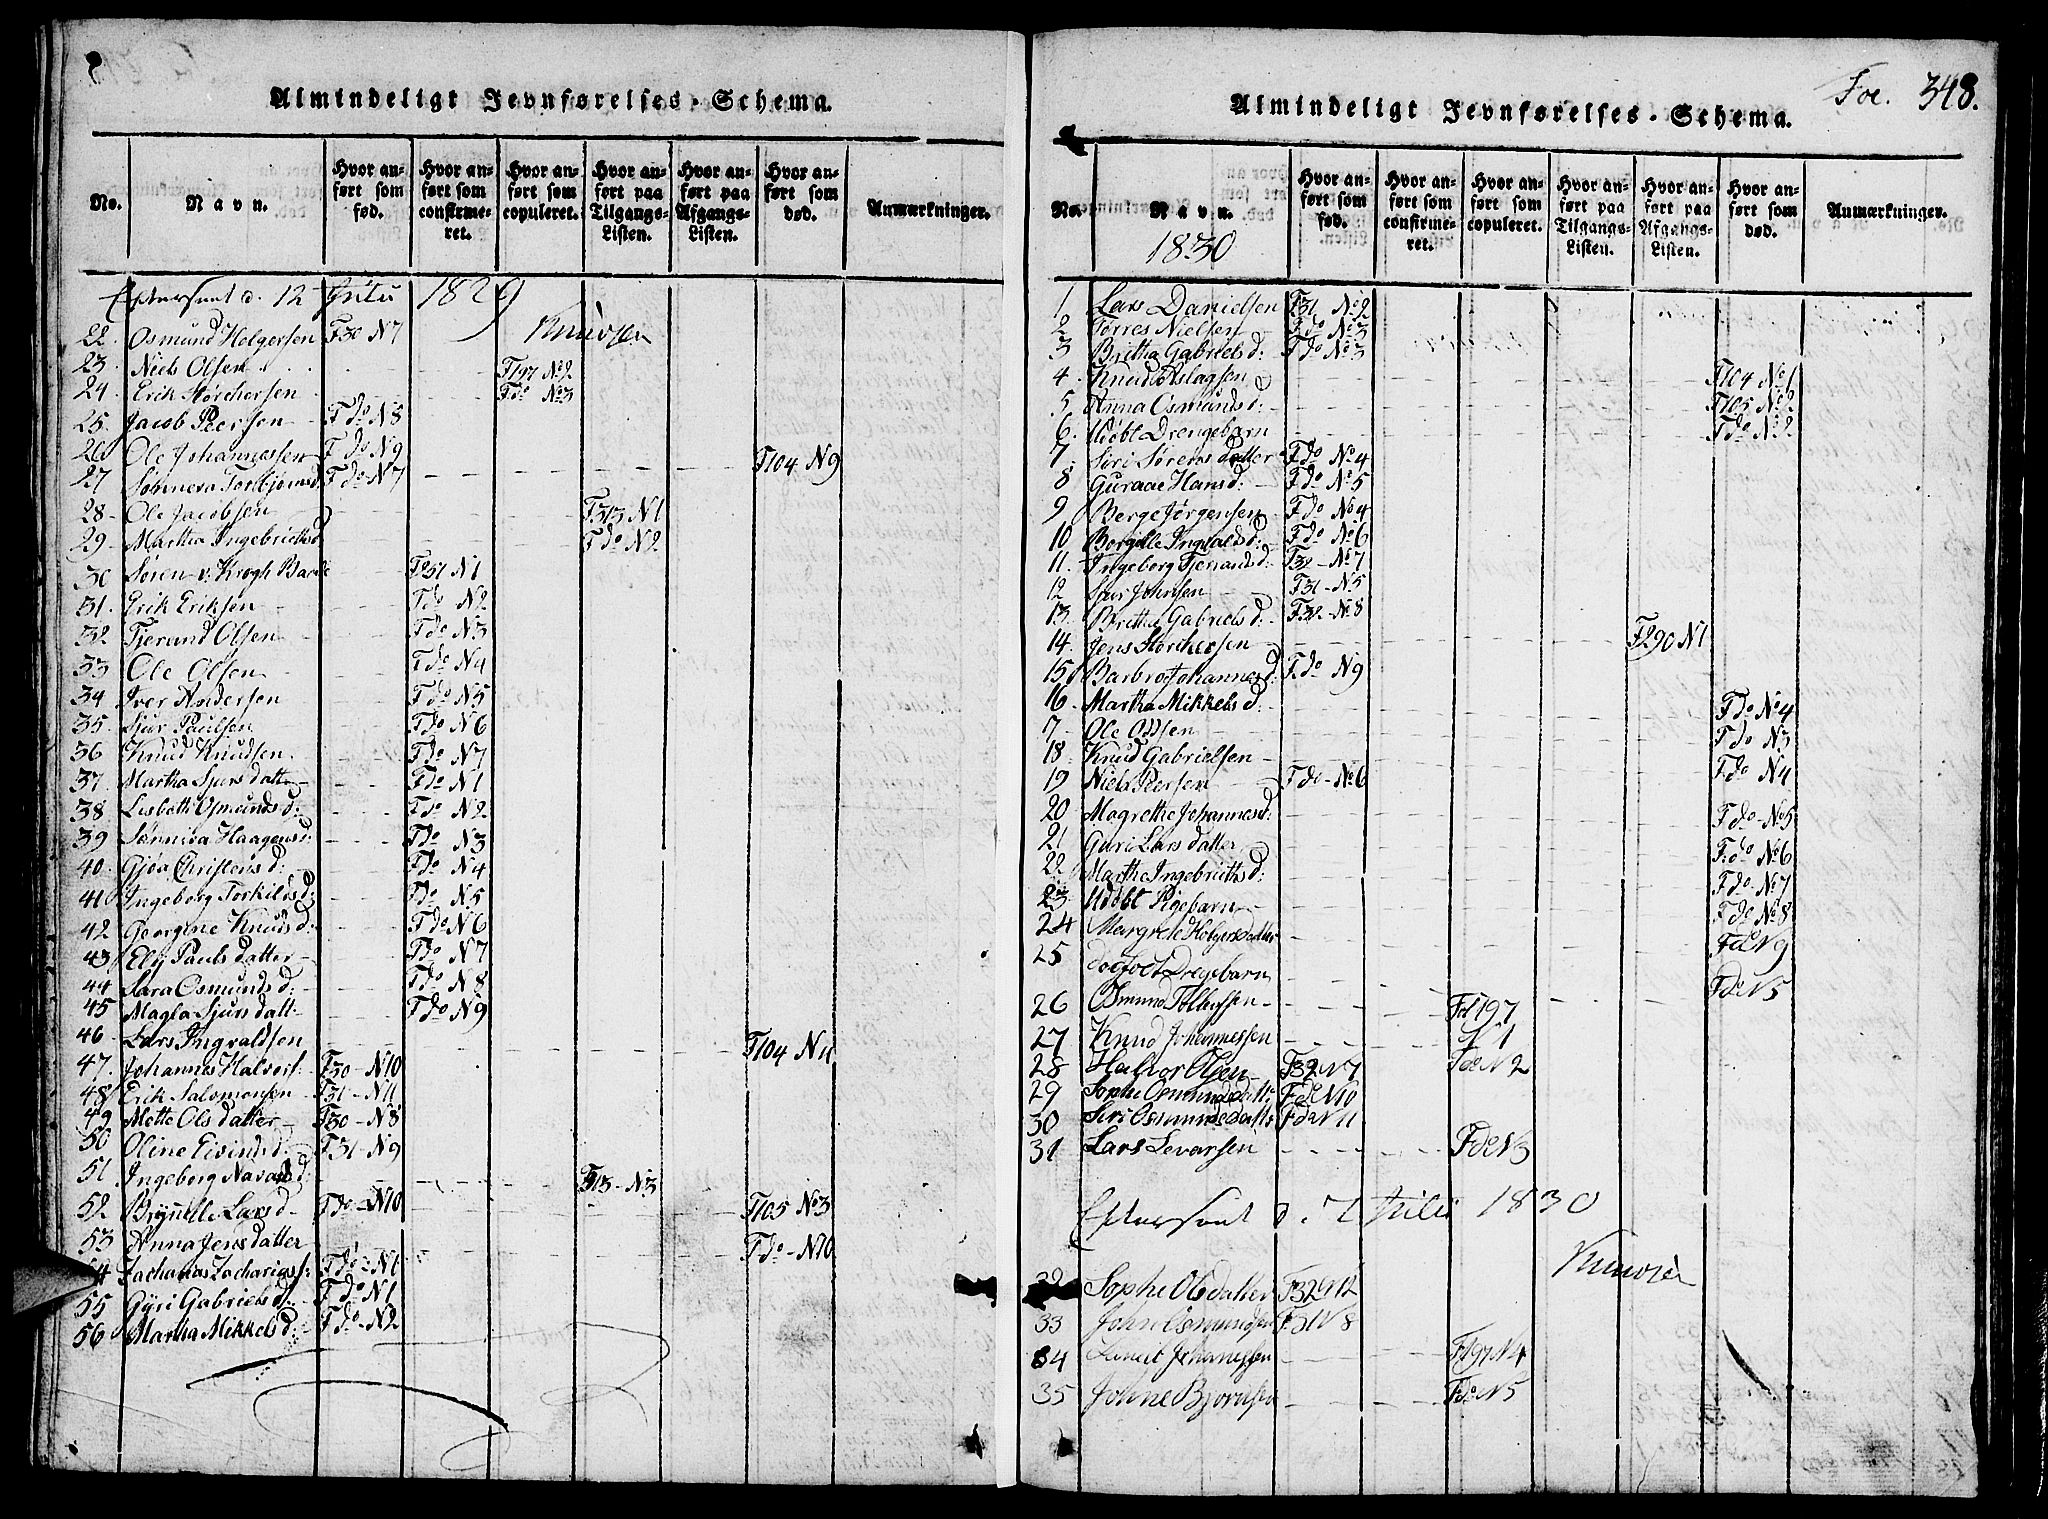 Almindeligt Jevnførelses-Schema.
No. Navn. Hvor anført som fød. Hvor anført som confirmeret. Hvor anført som copuleret. Hvor anført paa Tilgangs-Listen. Hvor anført paa Afgangs-Listen. Hvor anført som død. Anmærkninger.
Efterseet d. 12 Julii 1829
22. Osmund Holgersen F30 N7
23. Niels Olsen F197 No2
24. Erik Størchersen Fdo No3
25. Jacob Peersen Fdo N8
26. Ole Johannessen Fdo N9
27. Sønneva Torbjørnsd. Fdo N7 F104 N9
28 Ole Jacobsen F313 N1
29. Martha Ingebrichtsd Fdo N2
30 Søren v. Krogh Barde F251 N1
31. Erik Eriksen Fdo N2
32 Tjerand Olsen Fdo N3
33 Ole Olsen Fdo N4
34 Iver Andersen Fdo N5
35. Sjur Paulsen Fdo N6
36 Knud Knudsen Fdo N7
37. Martha Sjursdatter Fdo N1
38 Lisbeth Osmundsd: Fdo N2
39 Sønniva Haagensd: Fdo N3
40. Gjøa Christensd: Fdo N4
41 Ingeborg Torkildsd: Fdo N5
42 Georgine Knudsd: Fdo N6
43 Ely Paulsdatter Fdo N7
44 Sara Osmundsd: Fdo N8
45 Magla Sjursdatt: Fdo N9
46 Lars Ingvaldsen F104 N11
47. Johannes Halvors: F30 N10
48 Erik Salomonsen F31 N11
49 Mette Olsdatter F30 N8
50 Oline Eivindsd: F31 N9
51 Ingeborg Navarsd: F313 N3
52 Brynille Larsd Fdo N10 F105 No3
53 Anna Jensdatter Fdo N10
54 Zacharias Zachariass: Fdo N1
55 Gyri Gabrielsd: Fdo N1
56 Martha Mikkelsd: Fdo N2
Almindeligt Jevnførelses-Schema.
Foe. 348.
No. Navn. Hvor anført som fød. Hvor anført som confirmeret. Hvor anført som copuleret. Hvor anført paa Tilgangs-Listen. Hvor anført paa Afgangs-Listen. Hvor anført som død. Anmærkninger.
1830
1 Lars Danielsen F31 No2
2 Torres Nielsen Fdo No3
3 Britha Gabrielsd: Fdo No3
4 Knud Aslagsen F104 No1
5 Anna Osmundsd: F105 No2
6. Udøbt Drengebarn Fdo No2
7 Siri Sørensdatter Fdo No4
8 Guraae Hansd: Fdo No5
9 Berge Jørgensen Fdo No4
10 Borgille Ingvaldsd: Fdo No6
11. Ingeborg Tjerandsd: F32 No7
12 Sjur Johnsen F31 N5
13. Britha Gabrielsd: F32 No8
14. Jens Størchersen F290 N1
15 Barbro Johannesd: Fdo N9
16 Martha Mikkelsd: Fdo No4
7 Ole Olsen Fdo N3
18. Knud Gabrielsen Fdo N4
19 Niels Peersen Fdo No6
20 Magrethe Johannesd: Fdo No5
21 Guri Larsdatter Fdo No6
22 Marthe Ingebrithsd: Fdo No7
23 Udøbt Pigebarn Fdo No8
24 Margrete Holgersdatter Fdo N9
25 Dregebarn Fdo N5
26 Osmund Tollefsen Fol 197
27 Knud Johannessen N1
28 Halvor Olsen F32 N7 Fdo N2
29 Sophe Osmundsdatter Fdo N10
30 Siri Osmundsdatter Fdo N11
31 Lars Levarsen Fdo N3
Efterseet d. 7 Julii 1830
32 Sophe Olsdatter F32 N12
33 John Osmundsen F31 N8
34 Johanessen F197 N4
35 Johne Bjørnsen Fdo N5